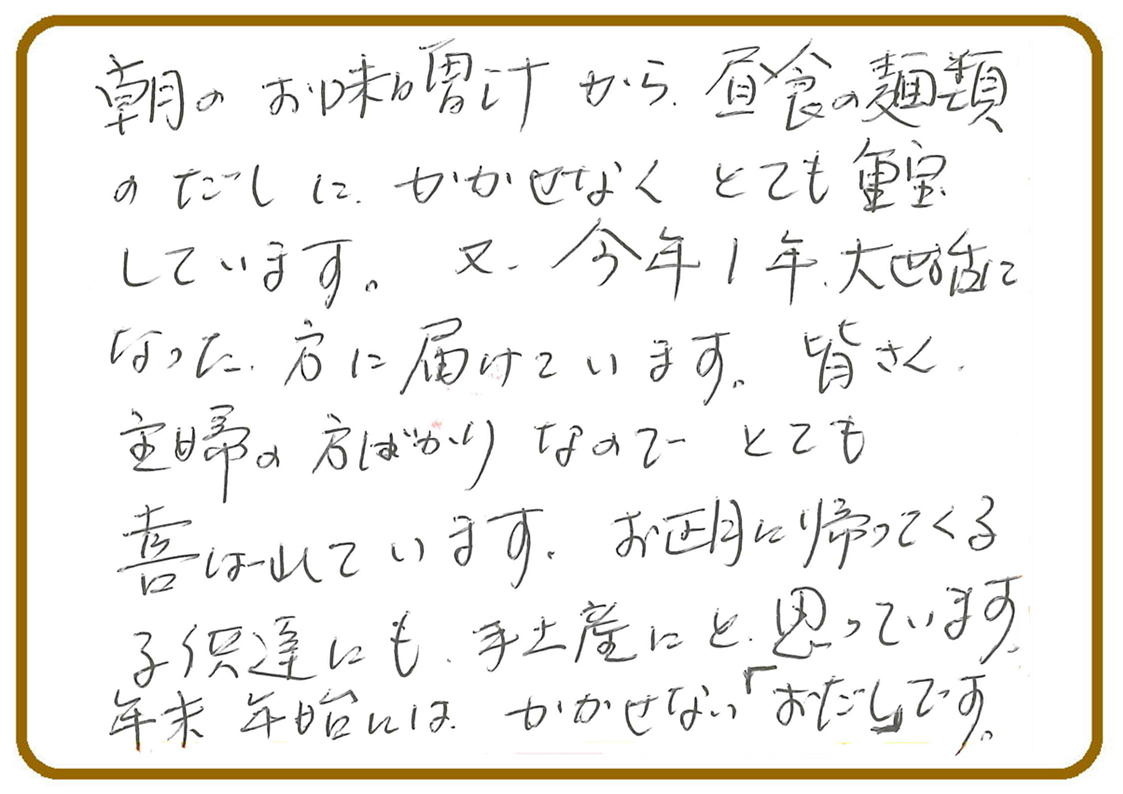 朝のお味噌汁から、昼食の麺類
のだしに、かかせなくとても重宝
しています。又、今年1年、大世話に
なった、方に届けています。皆さん、
主婦の方ばかりなので とても
喜ばれています。お正月に帰ってくる
子供達にも、手土産にと、思っています。
年末年始には、かかせない「おだし」です。